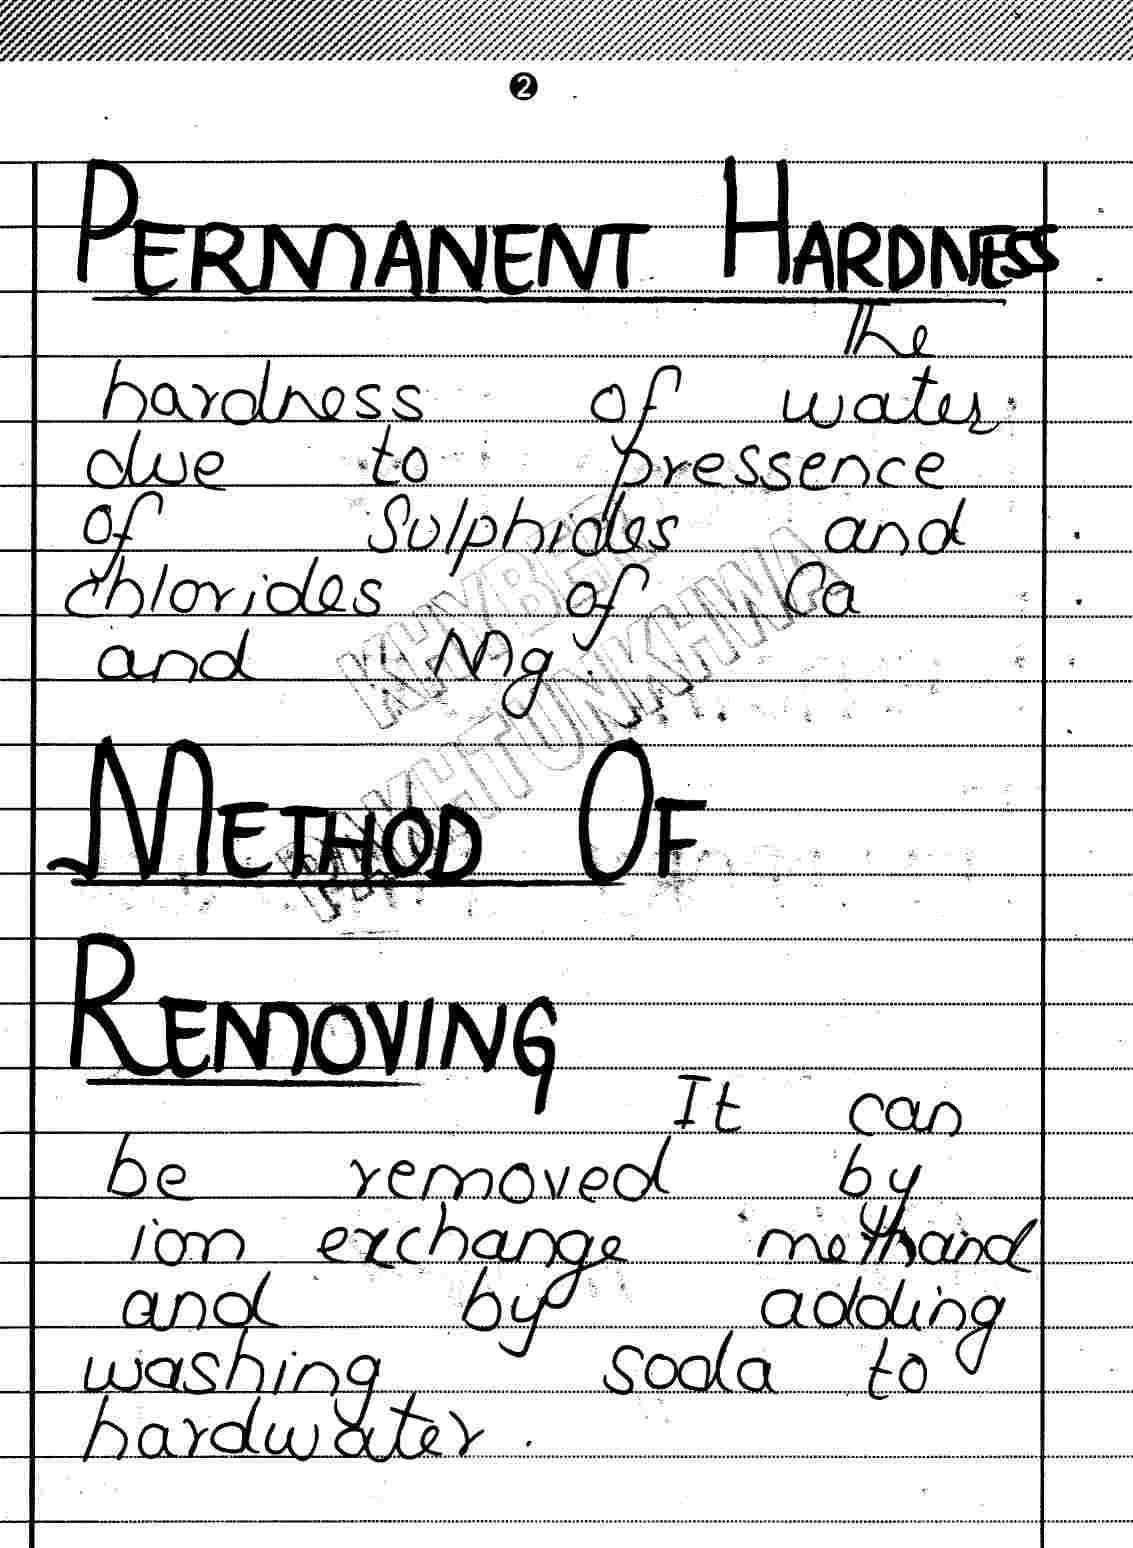 2
PERMANENT HARDNESS
The
hardness of water
due to pressence
of Sulphides and
chlorides of Ca
and Mg.
KHYBER
PAKHTUNKHWA
METHOD OF
REMOVING
It can
be removed by
ion exchange methand
and by adding
washing soda to
hardwater.